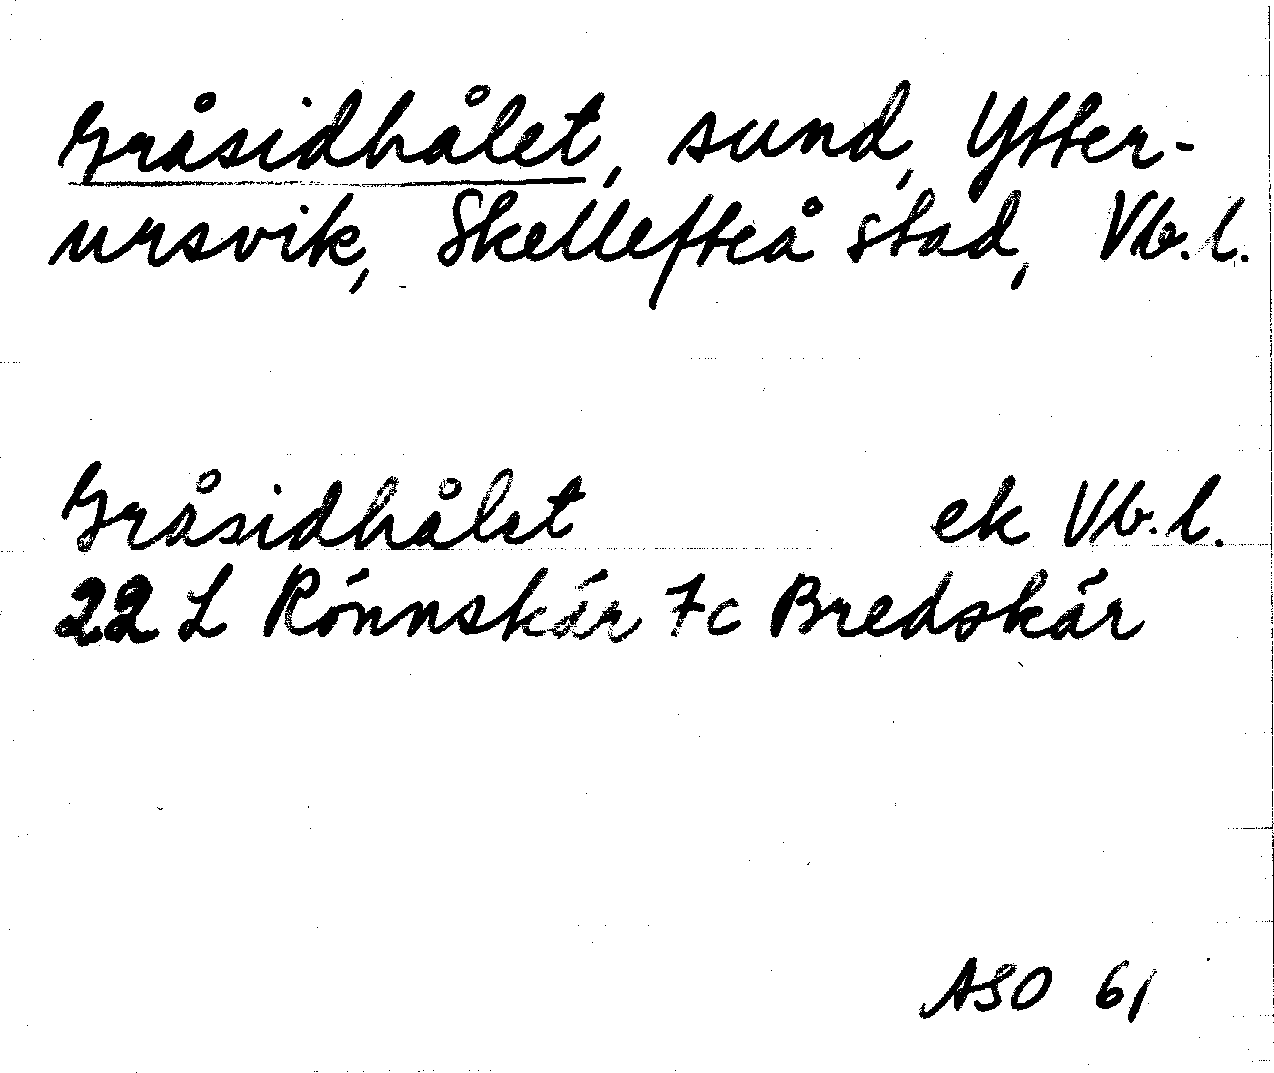 Gråsidhålet, sund, Ytter-
ursvik, Skellefteå stad, Vb. l.
Gråsidhålet ek Vb. l.
22 L Rönnskär 7c Bredskär
ASO 61